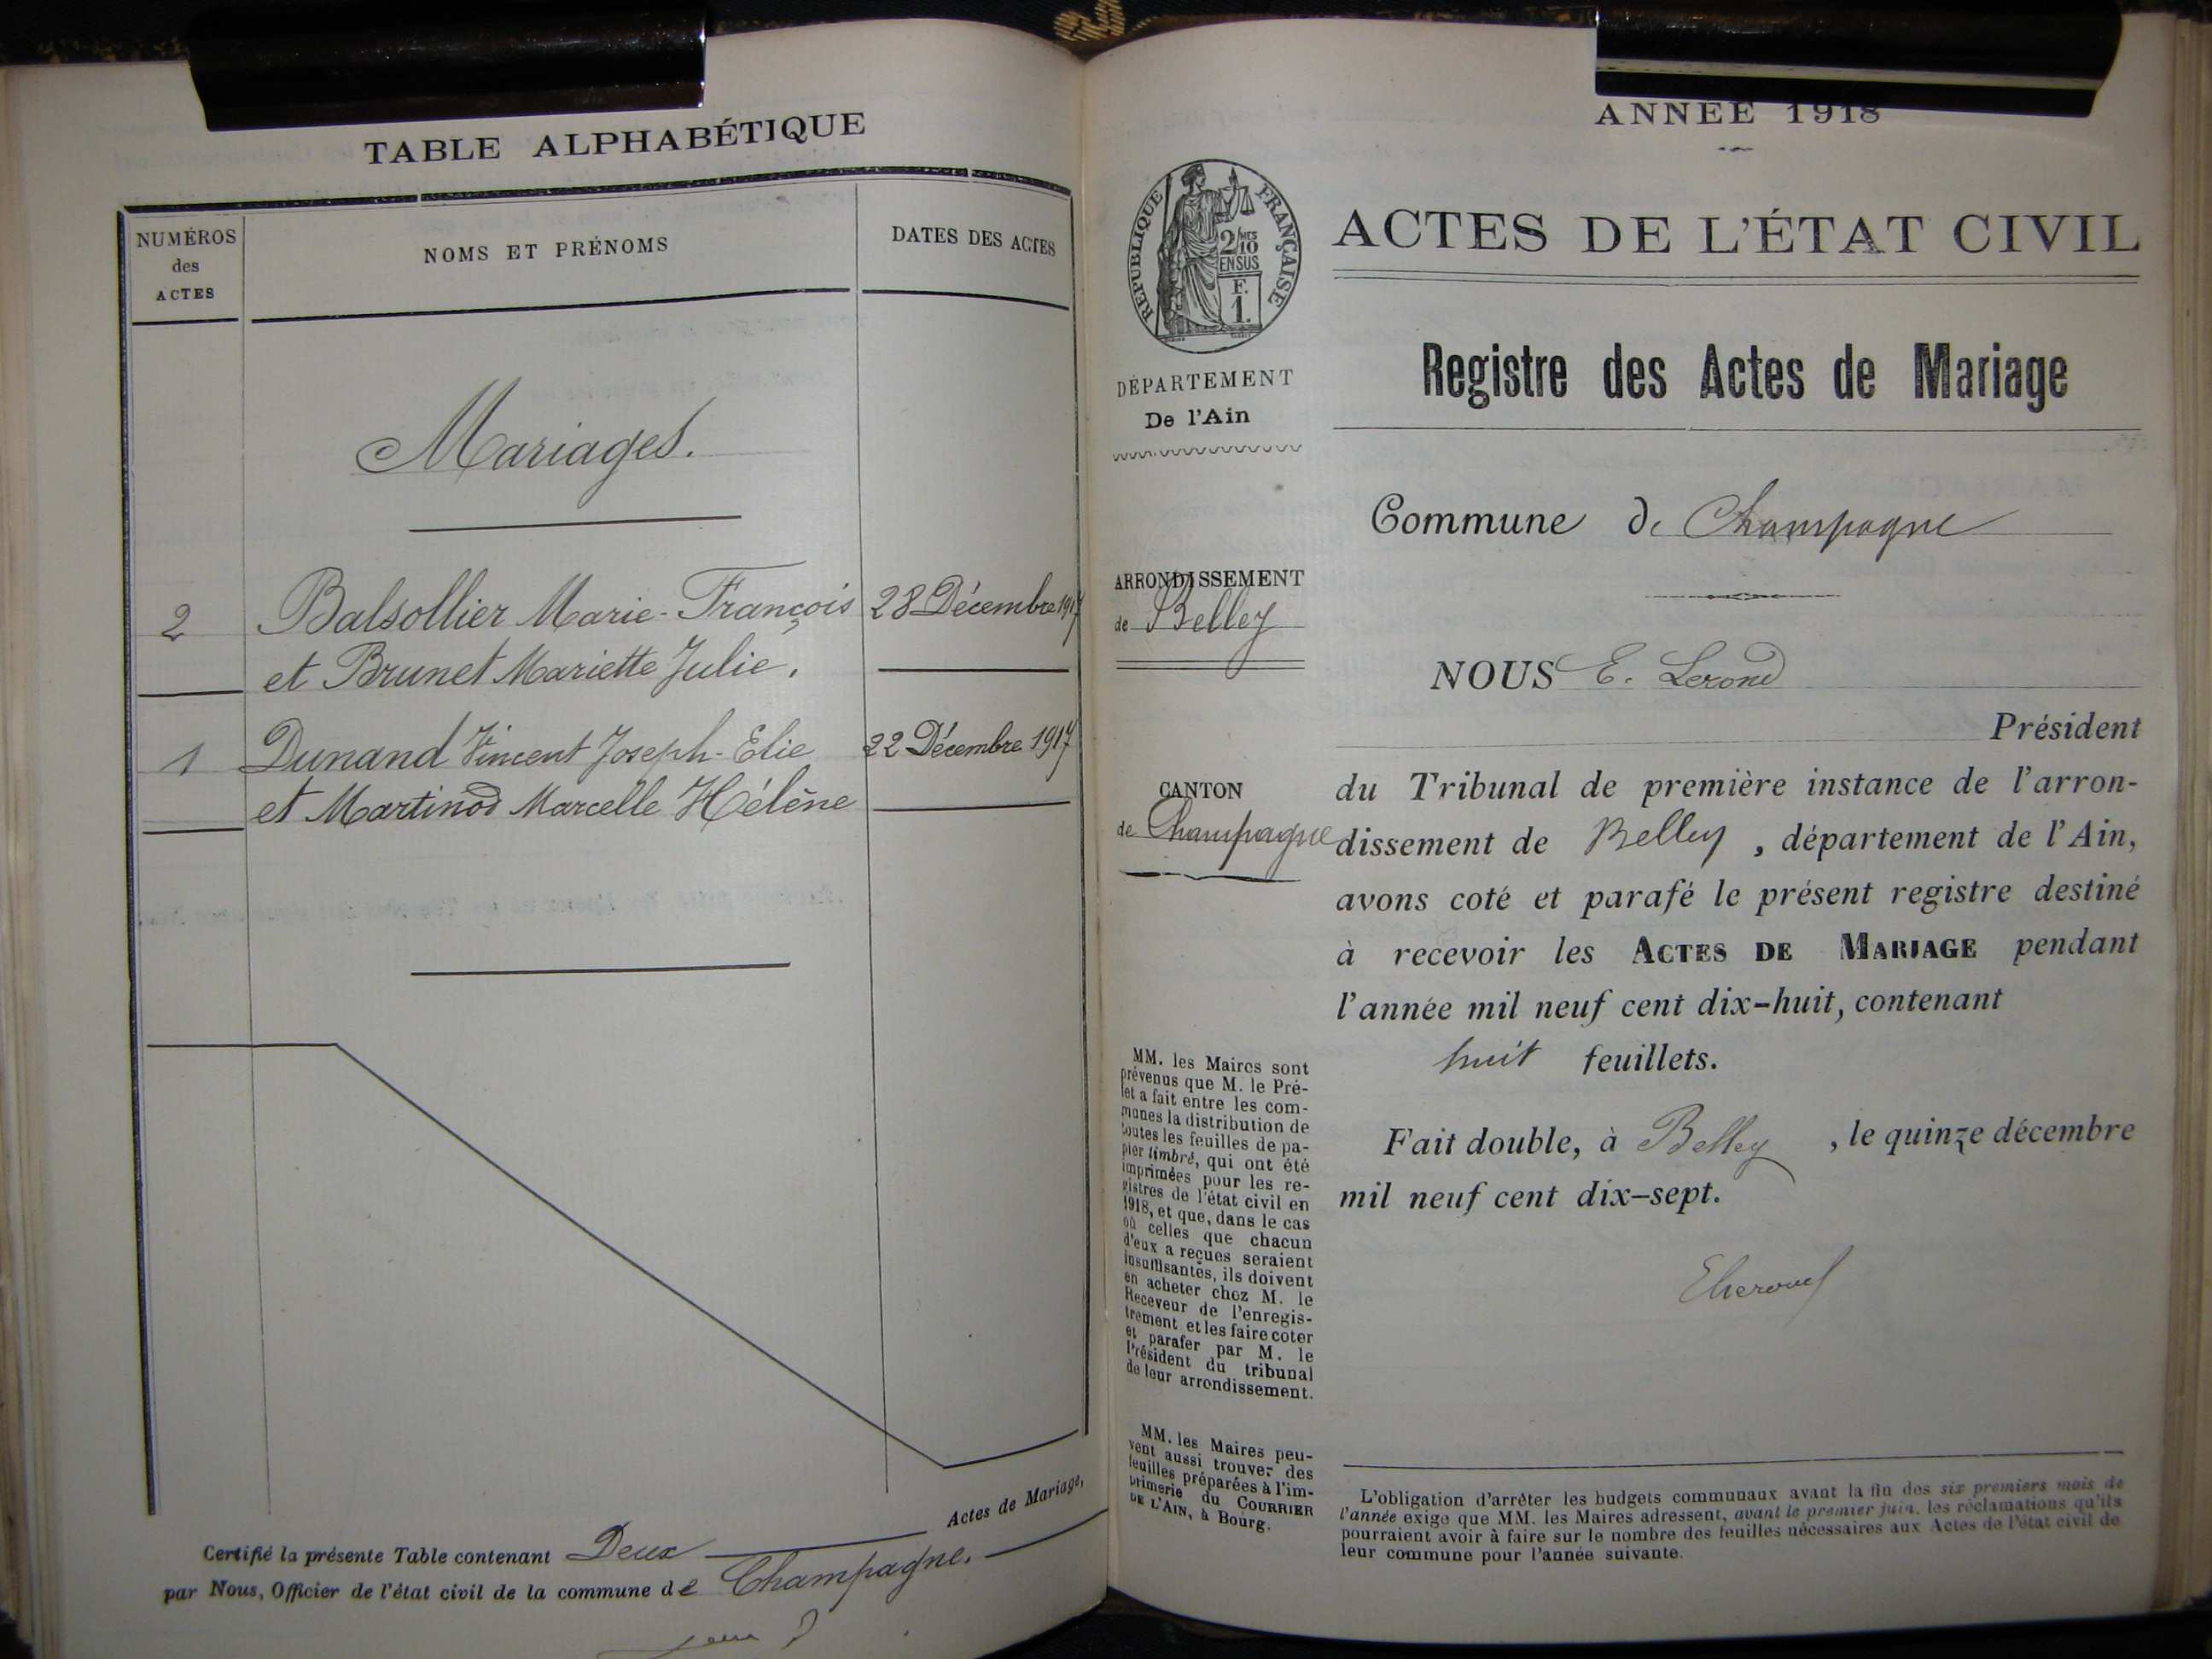 TABLE ALPHABÉTIQUE
NUMÉROS
des
ACTES
NOMS ET PRÉNOMS
DATES DES ACTES
Mariages.
2 Balsollier Marie-François 28 Décembre 1917
et Brunet Mariette Julie.
1 Dunand Vincent Joseph-Elie 22 Décembre 1917
et Martinod Marcelle Hélène
Certifié la présente Table contenant Deux Actes de Mariage,
par Nous, Officier de l'état civil de la commune de Champagne.
ANNÉE 1918
RÉPUBLIQUE FRANÇAISE
2/10 MES
EN SUS
F.
1.
DÉPARTEMENT
De l'Ain
ARRONDISSEMENT
de Belley
CANTON
de Champagne
MM. les Maires sont
prévenus que M. le Pré-
fet a fait entre les com-
munes la distribution de
toutes les feuilles de pa-
pier timbré, qui ont été
imprimées pour les re-
gistres de l'état civil en
1918, et que, dans le cas
où celles que chacun
d'eux a reçues seraient
insuffisantes, ils doivent
en acheter chez M. le
Receveur de l'enregis-
trement et les faire coter
et parafer par M. le
Président du tribunal
de leur arrondissement.
MM. les Maires peu-
vent aussi trouver des
feuilles préparées à l'im-
primerie du COURRIER
DE L'AIN, à Bourg.
ACTES DE L'ÉTAT CIVIL
Registre des Actes de Mariage
Commune de Champagne
NOUS E. Lerond
Président
du Tribunal de première instance de l'arron-
dissement de Belley, département de l'Ain,
avons coté et parafé le présent registre destiné
à recevoir les ACTES DE MARIAGE pendant
l'année mil neuf cent dix-huit, contenant
huit feuillets.
Fait double, à Belley, le quinze décembre
mil neuf cent dix-sept.
L'obligation d'arrêter les budgets communaux avant la fin des six premiers mois de
l'année exige que MM. les Maires adressent, avant le premier juin, les réclamations qu'ils
pourraient avoir à faire sur le nombre des feuilles nécessaires aux Actes de l'état civil de
leur commune pour l'année suivante.